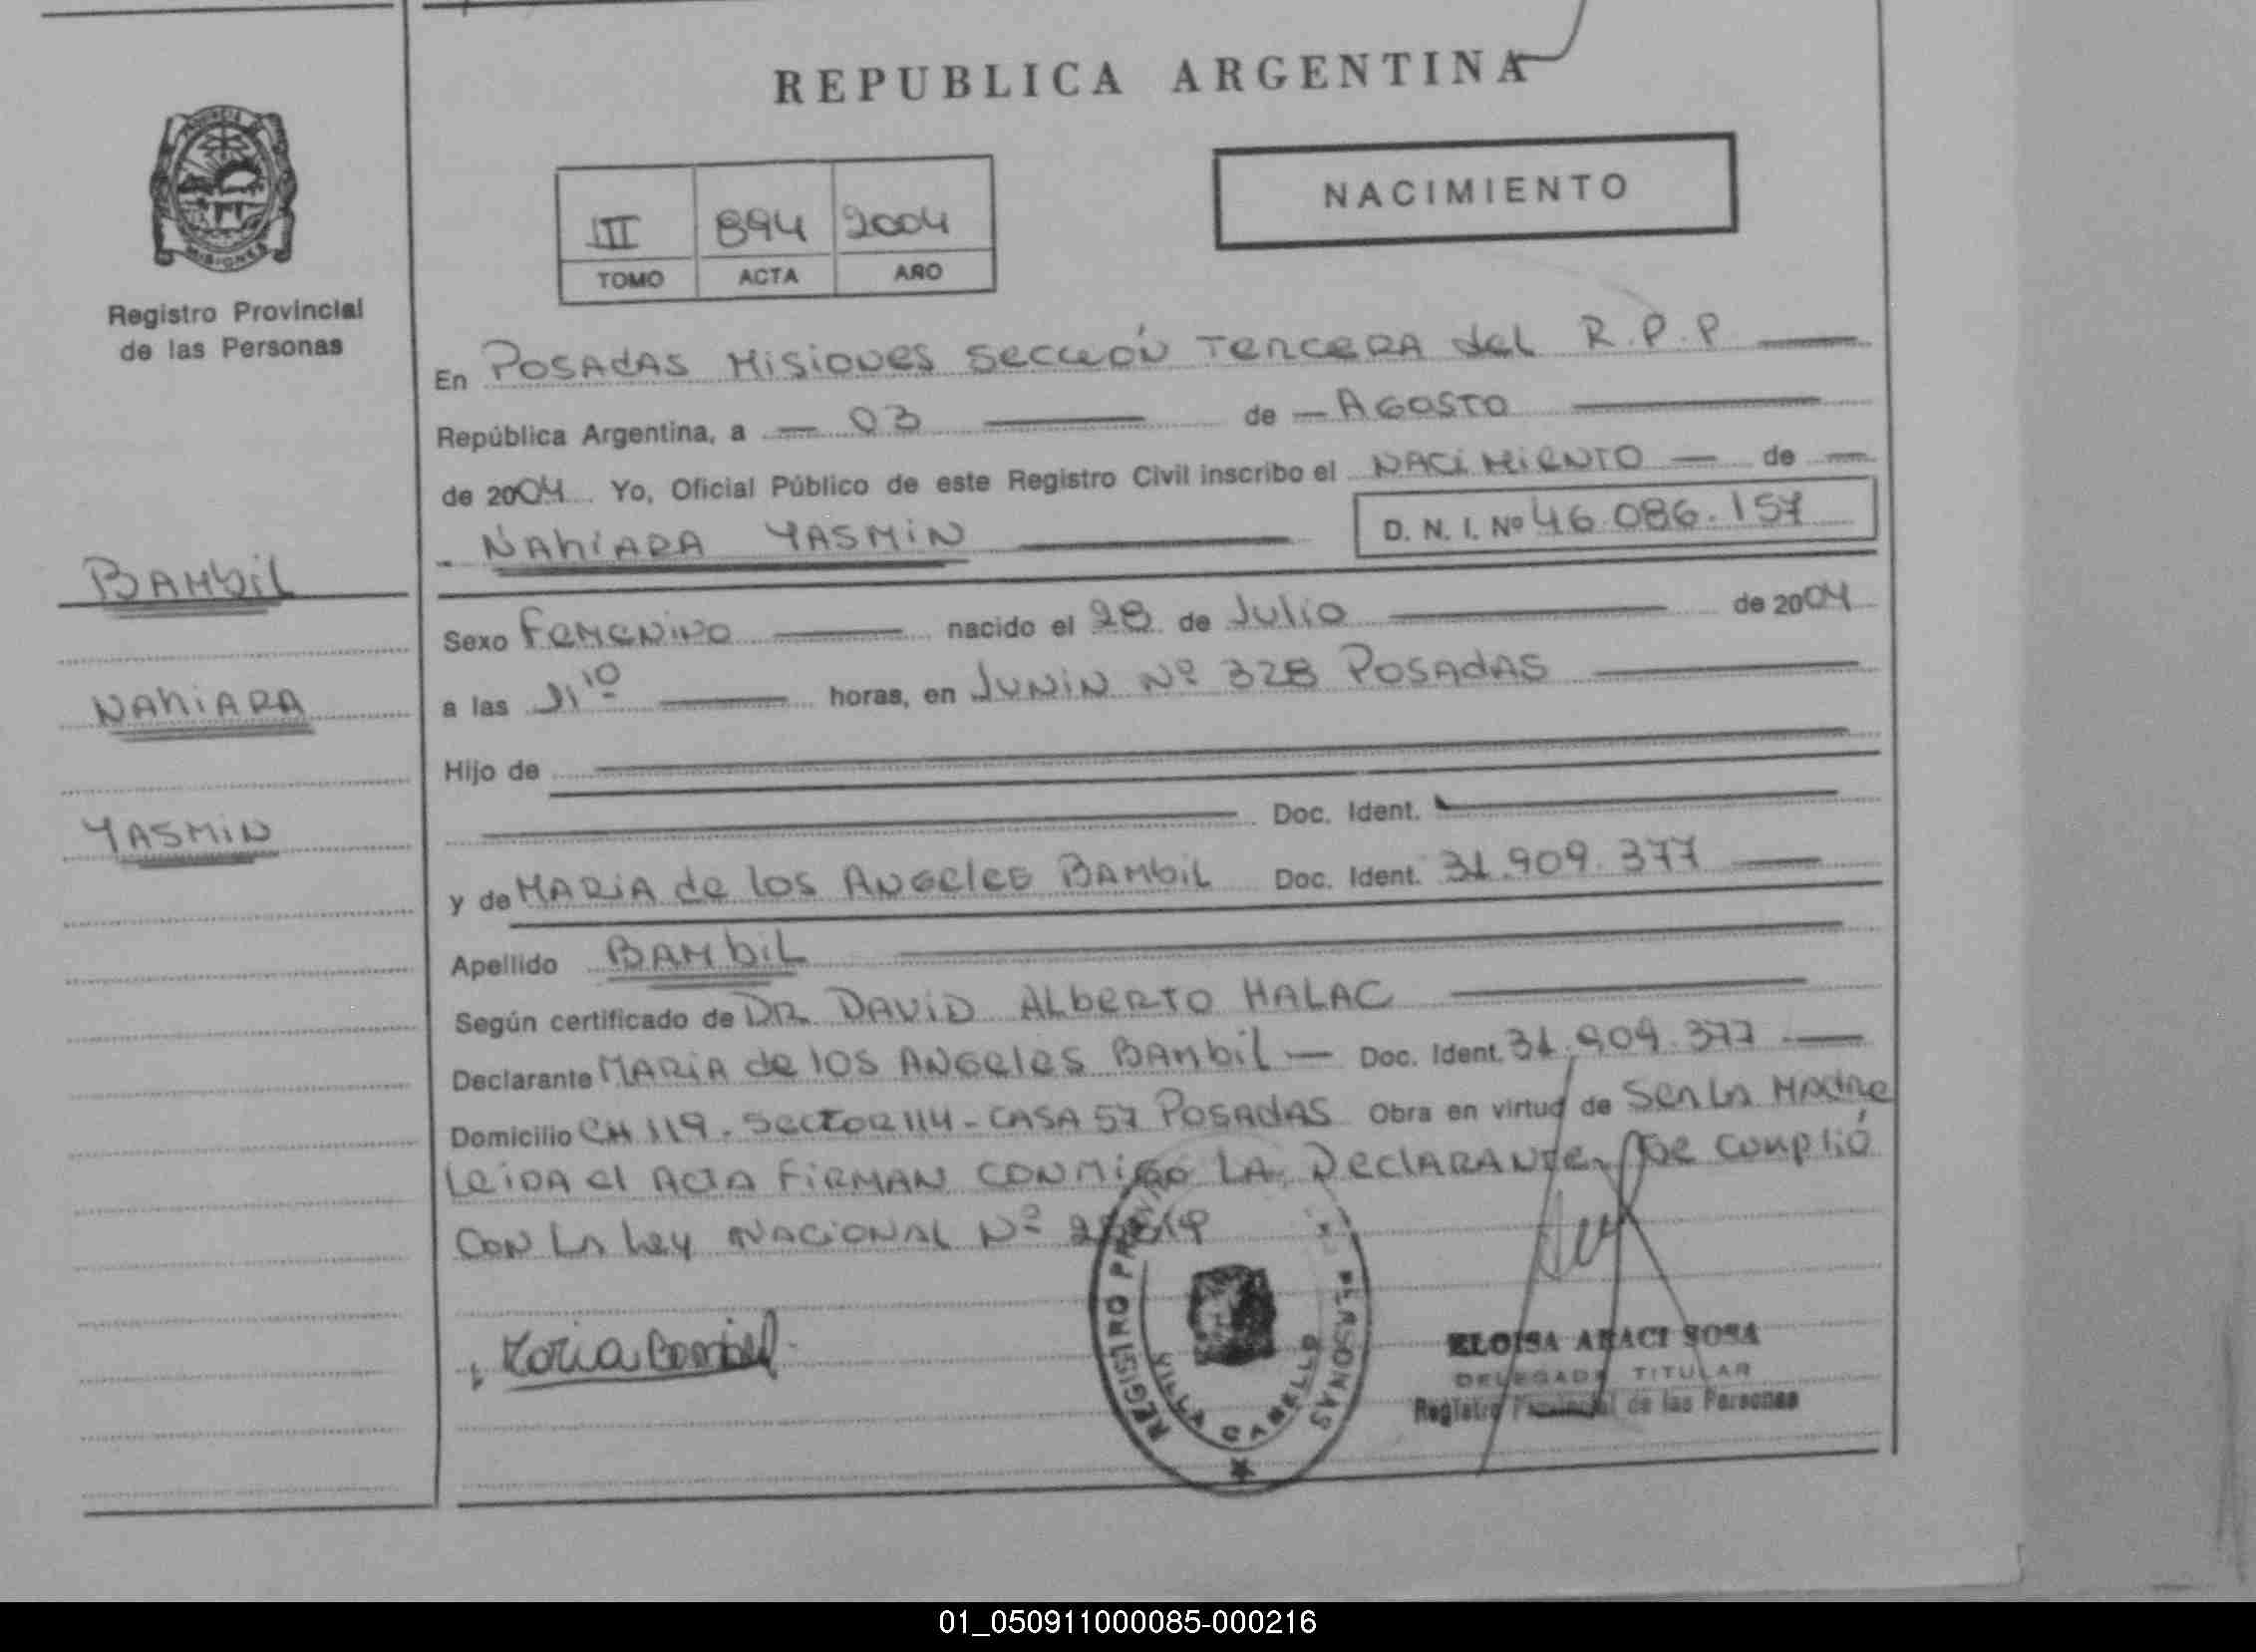 REPUBLICA ARGENTINA
PROVINCIA DE MISIONES
Registro Provincial
de las Personas
III 894 2004
TOMO ACTA AÑO
NACIMIENTO
BAMbiL
NAhiARA
YASMiN
En POSAdAS MiSiONES SECCiÓN TERCERA del R.P.P
República Argentina, a 03 de AGOSTO
de 2004 Yo, Oficial Público de este Registro Civil inscribo el NACiMiENTO de
NAhiARA YASMiN D. N. I. Nº 46.086.157
Sexo FEMENiNO nacido el 28 de Julio de 2004
a las 11 10 horas, en JUNiN Nº 328 POSAdAS
Hijo de
Doc. Ident.
y de MARiA de los ANGeles BAMbiL Doc. Ident. 31.909.377
Apellido BAMbiL
Según certificado de DR DAViD ALbERTO HALAC
Declarante MARiA de los ANGeles BAMbiL Doc. Ident. 31.909.377
Domicilio CH 119. SecToR 114 - CASA 57 POSAdAS Obra en virtud de SER LA MAdRe
LeiDA el ACTA FiRMAN CONMiGO LA DeclARANTe, se cumplió
CON LA Ley NACiONAL Nº
Maria Bambil
REGISTRO PROVINCIAL PERSONAS
VILLA CABELLO
ELOISA ARACI SOSA
DELEGADA TITULAR
Registro Provincial de las Personas
01_050911000085-000216